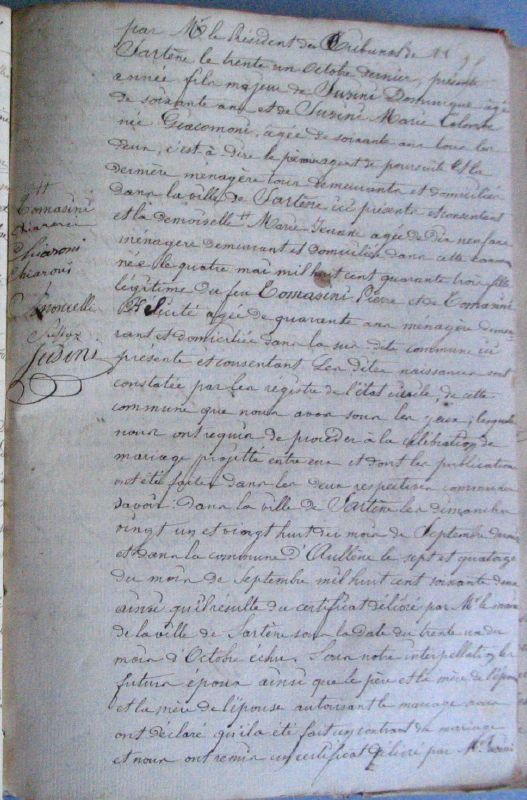 par Mr le Président du Tribunal de
Sartène le trente un Octobre dernier, présente
année fils majeur de Susini Dominique agé
de soixante ans et de Susini Marie Colombe
née Giacomoni, agée de soixante ans tous les
deux, c'est à dire le père agent de poursuite et la
dernière menagère tous demeurants et domiciliés
dans la ville de Sartène ici présents et consentant
et la demoiselle Marie agée de dix neuf ans
ménagère demeurant et domiciliée dans cette com
née le quatre mai mil huit cent quarante trois fille
légitime du feu Tomasini Pierre et de Tomasini
Félicité agée de quarante ans menagère demeu
rant et domiciliée dans la sus dite commune ici
présente et consentant. Les dites naissances sont
constatée par les registre de l'état civile, de cette
commune que nous avons sous les yeux; lesquels
nous ont requis de proceder à la célébration de
mariage projetté entre eux et dont les publication
ont été faites dans les deux respectives communes
savoir: dans la ville de Sartène les dimanches
vingt un et vingt huit du mois de Septembre dernier
et dans la commune d'Aullène le sept et quatorze
du mois de Septembre mil huit cent soixante deux
ainsi qu'il résulte du certificat délivré par Mr le maire
de la ville de Sartène sous la date du trente un du
mois d'Octobre échu. Sous notre interpellation les
futurs époux ainsi que le père et la mère de l'époux
et la mère de l'épouse autorisant le mariage nous
ont déclaré qu'il a été fait un contrat de mariage
et nous ont remis un certificat délivré par Mr
Tomasini
Chiaroni
Chiaroni
Susini